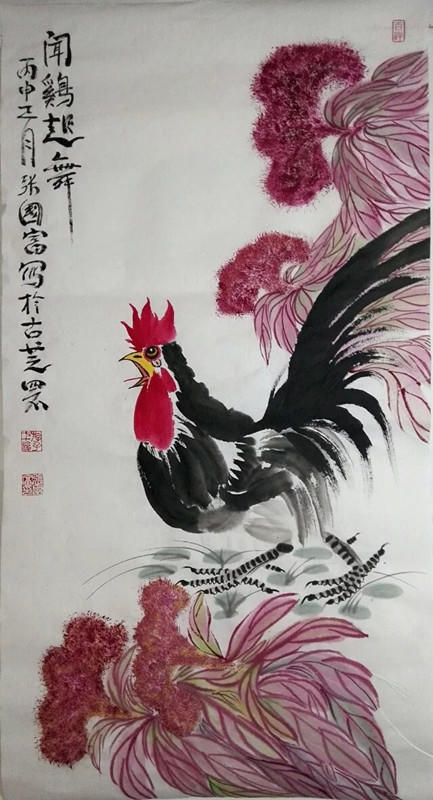 闻鷄起舞
丙申工月张國富写於古芝罘